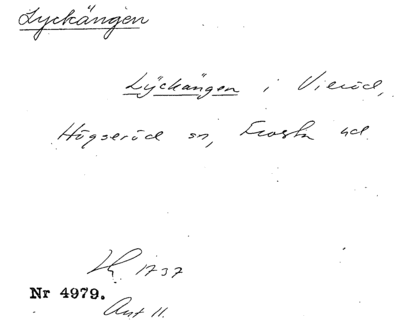 Lyckängen
Lÿckängen i Vieröd,
Högseröd sn, Frosta hd
1737
Nr 4979.
Ant 11.